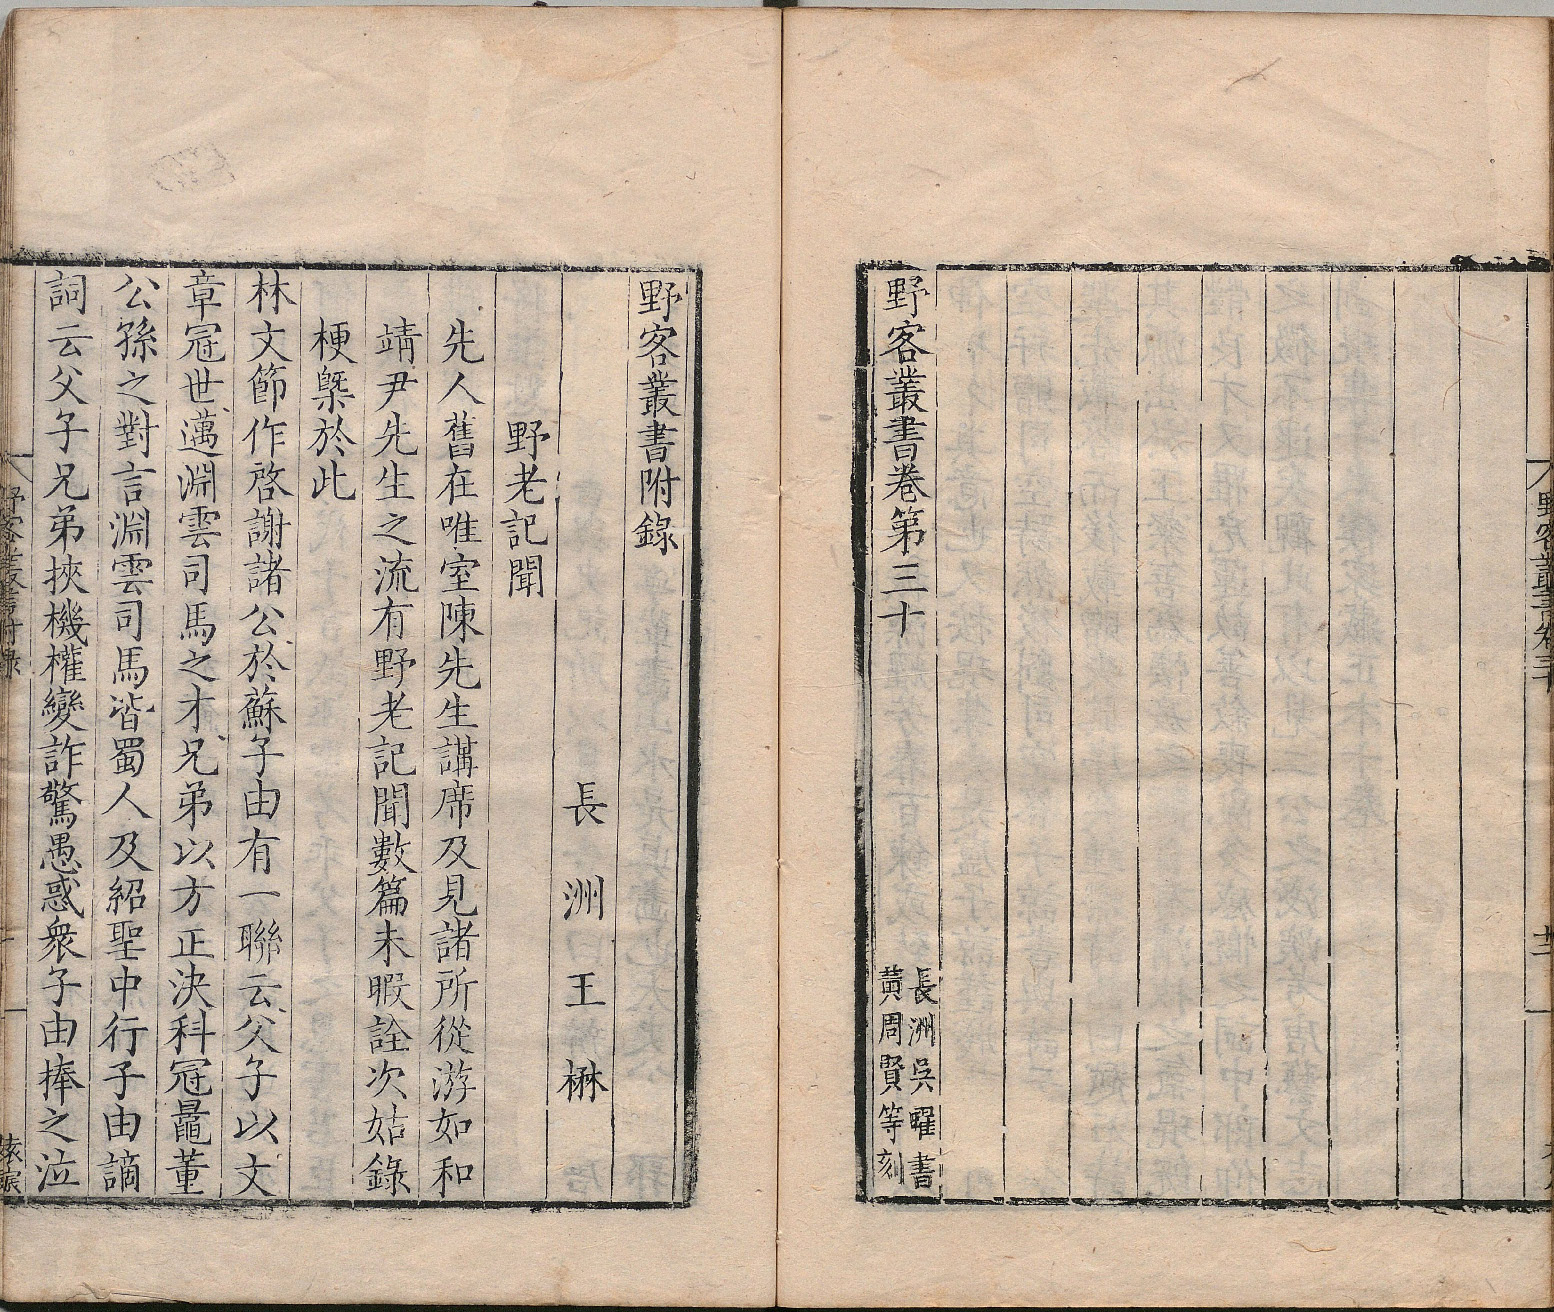 野客叢書卷三十
廿一
野客叢書卷第三十
長洲吳曜書
黃周賢等刻
野客叢書附錄
長洲王楙
野老記聞
先人舊在唯室陳先生講席及見諸所從游如和
靖尹先生之流有野老記聞數篇未暇詮次姑錄
梗槩於此
林文節作啓謝諸公於蘇子由有一聯云父子以文
章冠世邁淵雲司馬之才兄弟以方正決科冠鼂董
公孫之對言淵雲司馬皆蜀人及紹聖中行子由謫
詞云父子兄弟挾機權變詐驚愚惑衆子由捧之泣
野客叢書附錄